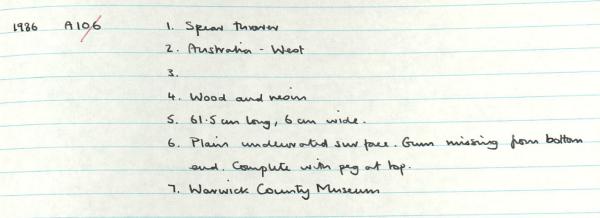 1986 A106 1. Spear thrower
2. Australia - West
3.
4. Wood and resin
5. 61.5 cm long, 6 cm wide.
6. Plain undecorated surface. Gum missing from bottom
end. Complete with peg at top.
7. Warwick County Museum